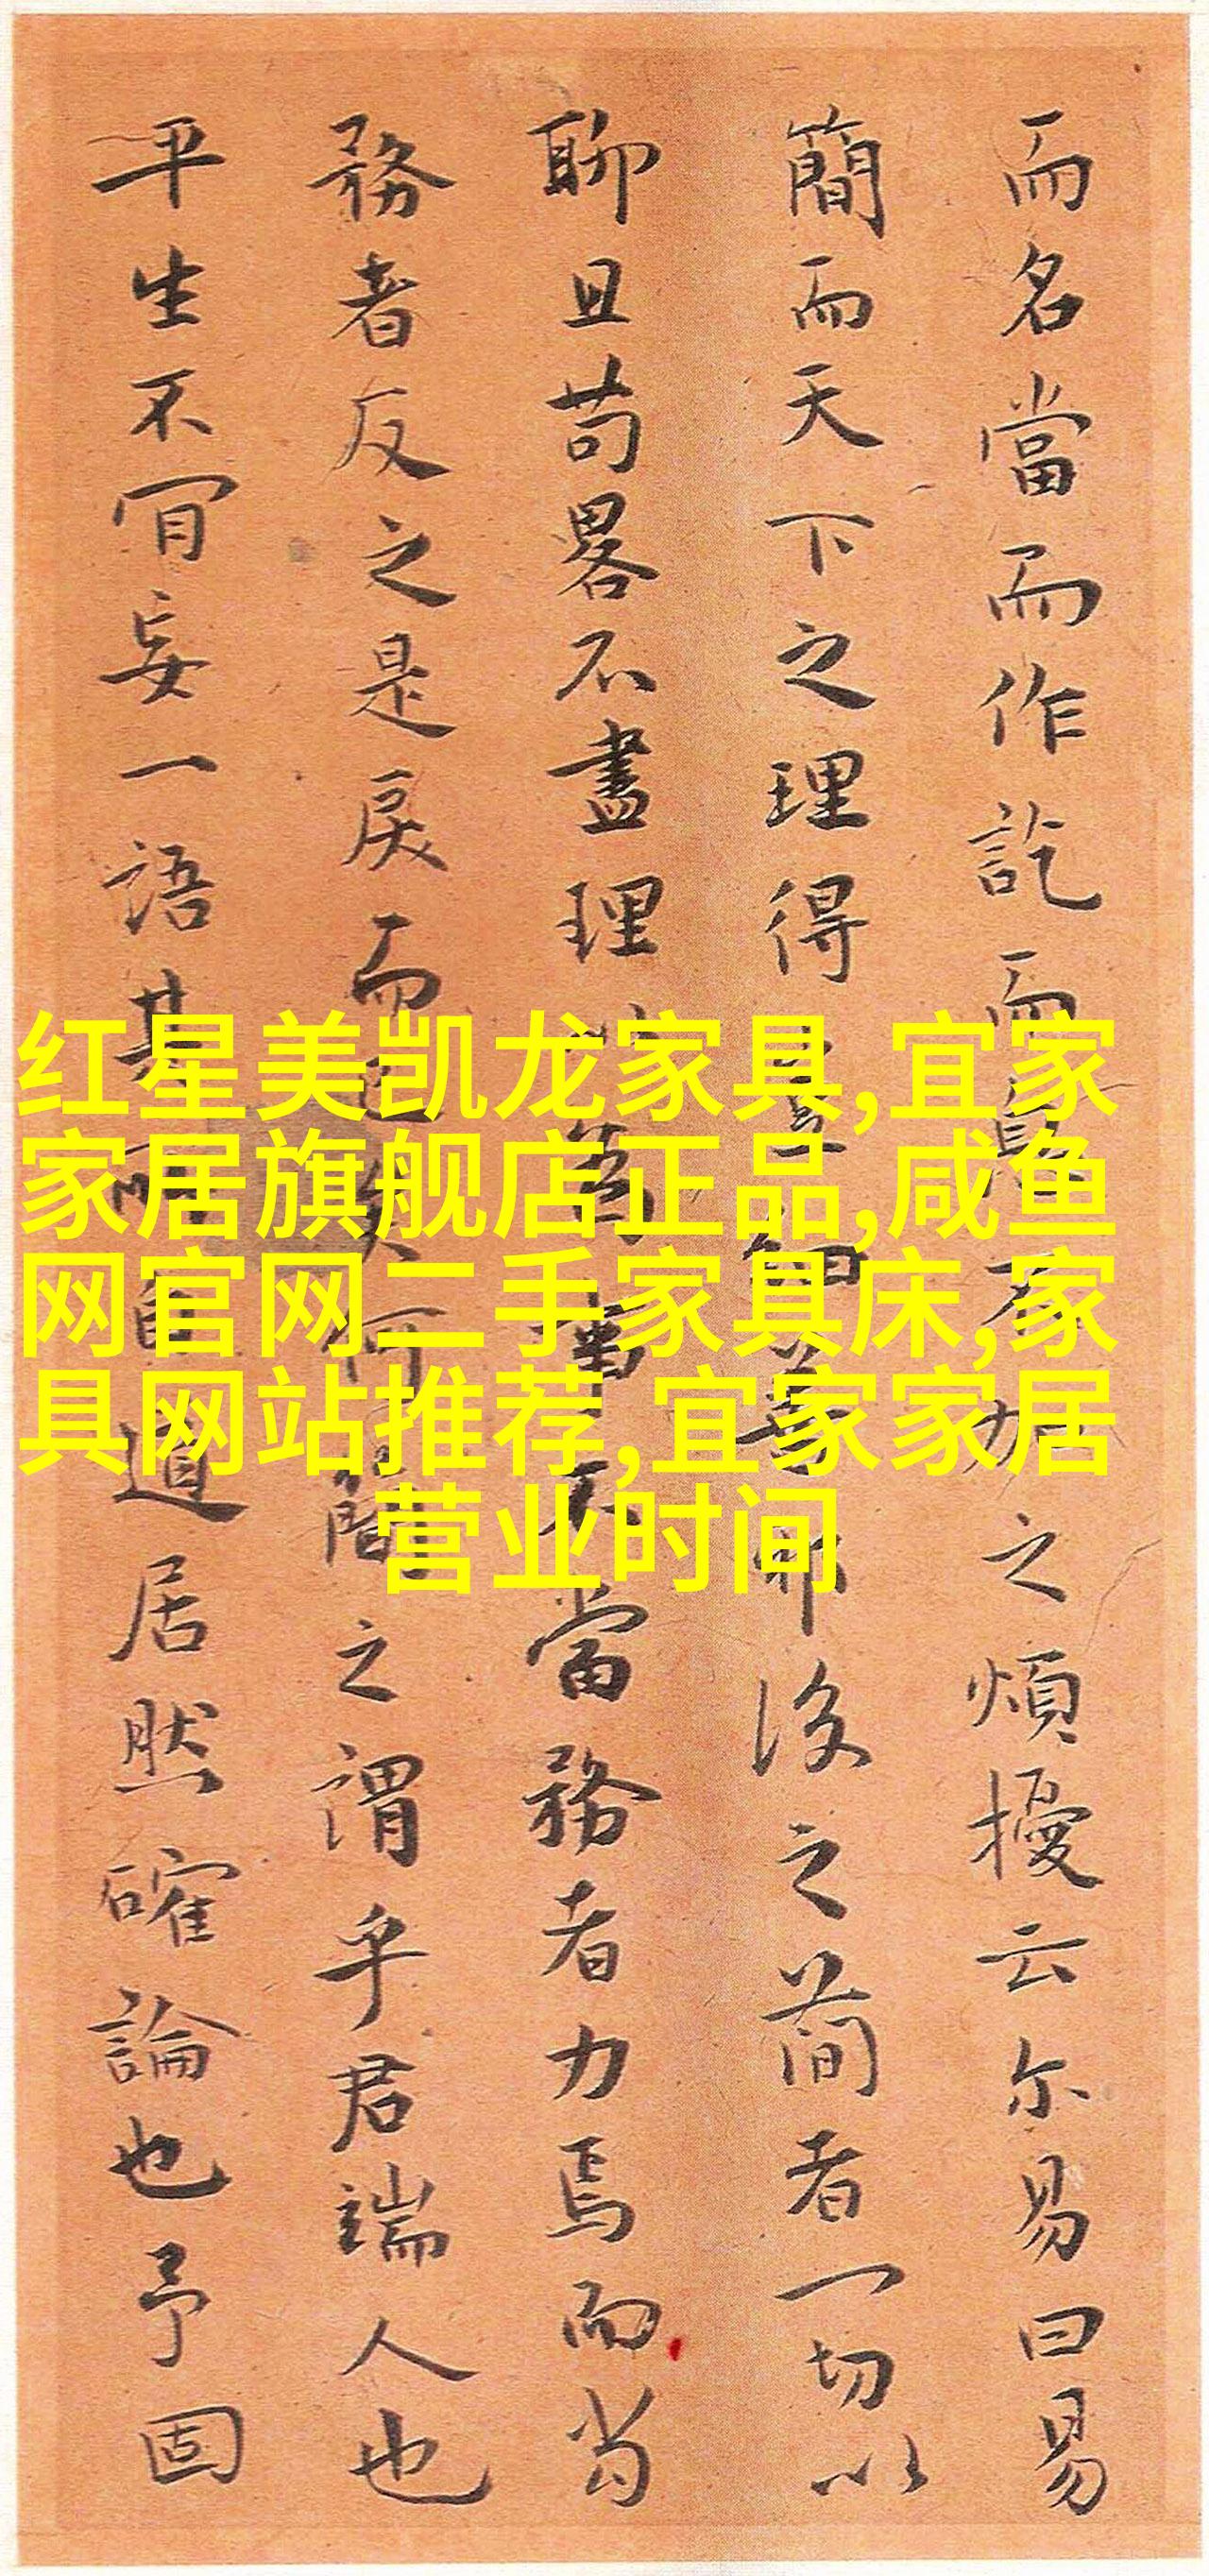 而名當而作訖而
之煩擾云尔易曰易
簡而天下之理得
後之简者一切以
聊且苟畧不盡理
當務者力焉而苟
務者反之是戾而
簡之謂乎君端人也
平生不肎妄一語其
道居然確論也予固
红星美凯龙家具,宜家
家居旗舰店正品,咸鱼
网官网二手家具床,家
具网站推荐,宜家家居
营业时间